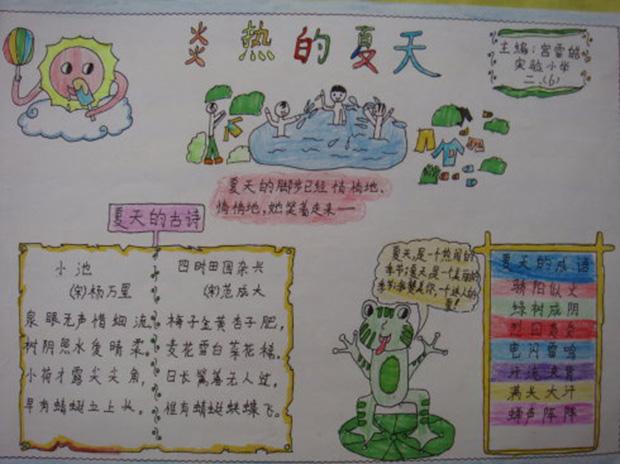 炎热的夏天
主编:宫雪皓
实验小学
二.(6)
夏天的脚步已经悄悄地、
悄悄地,她笑着走来——
夏天的古诗
小池
(宋)杨万里
泉眼无声惜细流,
树阴照水爱晴柔。
小荷才露尖尖角,
早有蜻蜓立上头。
四时田园杂兴
(宋)范成大
梅子金黄杏子肥,
麦花雪白菜花稀。
日长篱落无人过,
惟有蜻蜓蛱蝶飞。
夏天,是一个热闹的
季节;夏天,是一个美丽的
季节;我赞美你,一个迷人的
夏!
夏天的成语
骄阳似火
绿树成阴
烈日炎炎
电闪雷鸣
汗流浃背
满头大汗
蝉声阵阵